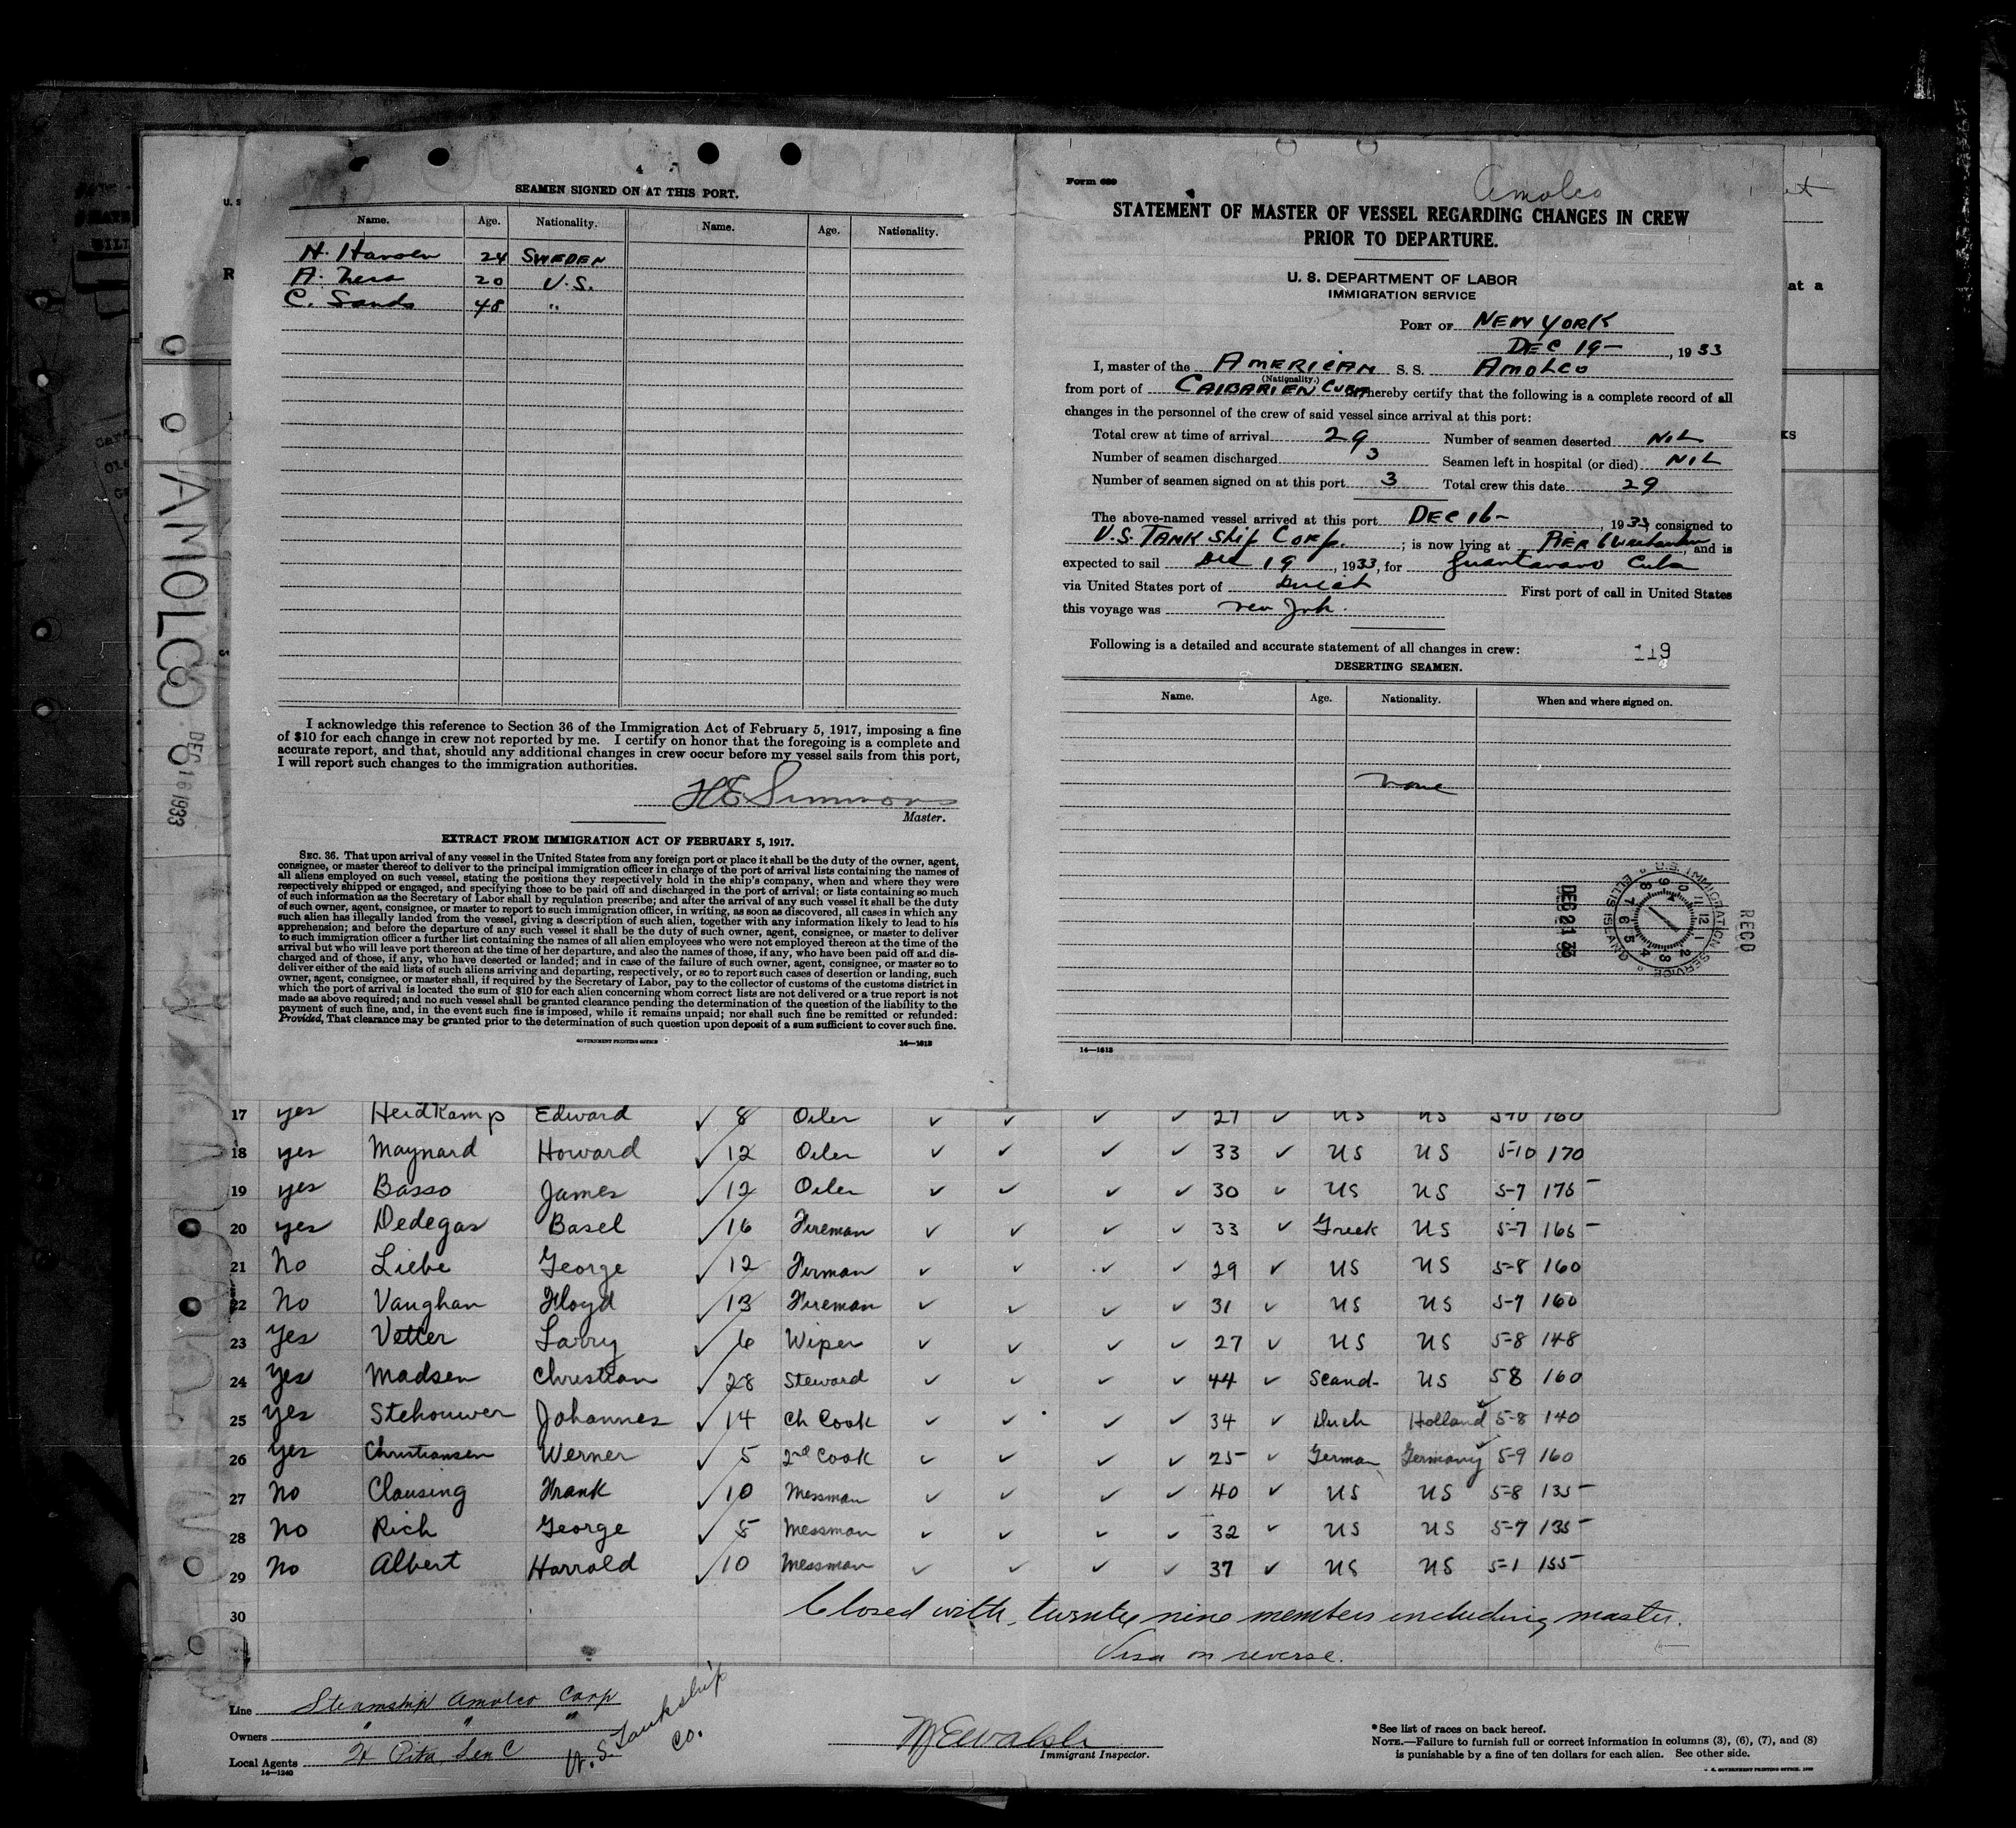 SEAMEN SIGNED ON AT THIS PORT.
Name. Age. Nationality. Name. Age. Nationality.
H. Hansen 24 SWEDEN
A. 20 U.S.
C. Sands 48 "
I acknowledge this reference to Section 36 of the Immigration Act of February 5, 1917, imposing a fine
of $10 for each change in crew not reported by me. I certify on honor that the foregoing is a complete and
accurate report, and that, should any additional changes in crew occur before my vessel sails from this port,
I will report such changes to the immigration authorities.
H E Simmons
Master.
EXTRACT FROM IMMIGRATION ACT OF FEBRUARY 5, 1917.
SEC. 36. That upon arrival of any vessel in the United States from any foreign port or place it shall be the duty of the owner, agent,
consignee, or master thereof to deliver to the principal immigration officer in charge of the port of arrival lists containing the names of
all aliens employed on such vessel, stating the positions they respectively hold in the ship's company, when and where they were
respectively shipped or engaged, and specifying those to be paid off and discharged in the port of arrival; or lists containing so much
of such information as the Secretary of Labor shall by regulation prescribe; and after the arrival of any such vessel it shall be the duty
of such owner, agent, consignee, or master to report to such immigration officer, in writing, as soon as discovered, all cases in which any
such alien has illegally landed from the vessel, giving a description of such alien, together with any information likely to lead to his
apprehension; and before the departure of any such vessel it shall be the duty of such owner, agent, consignee, or master to deliver
to such immigration officer a further list containing the names of all alien employees who were not employed thereon at the time of the
arrival but who will leave port thereon at the time of her departure, and also the names of those, if any, who have been paid off and dis-
charged and of those, if any, who have deserted or landed; and in case of the failure of such owner, agent, consignee, or master so to
deliver either of the said lists of such aliens arriving and departing, respectively, or so to report such cases of desertion or landing, such
owner, agent, consignee, or master shall, if required by the Secretary of Labor, pay to the collector of customs of the customs district in
which the port of arrival is located the sum of $10 for each alien concerning whom correct lists are not delivered or a true report is not
made as above required; and no such vessel shall be granted clearance pending the determination of the question of the liability to the
payment of such fine, and, in the event such fine is imposed, while it remains unpaid; nor shall such fine be remitted or refunded:
Provided, That clearance may be granted prior to the determination of such question upon deposit of a sum sufficient to cover such fine.
GOVERNMENT PRINTING OFFICE 14—1613
Form 689
Amolco
STATEMENT OF MASTER OF VESSEL REGARDING CHANGES IN CREW
PRIOR TO DEPARTURE.
U. S. DEPARTMENT OF LABOR
IMMIGRATION SERVICE
PORT OF NEW YORK
DEC 19-, 1933
I, master of the AMERICAN S. S. AMOLCO
(Nationality.)
from port of CAIBARIEN CUBA hereby certify that the following is a complete record of all
changes in the personnel of the crew of said vessel since arrival at this port:
Total crew at time of arrival 29 Number of seamen deserted NIL
Number of seamen discharged 3 Seamen left in hospital (or died) NIL
Number of seamen signed on at this port 3 Total crew this date 29
The above-named vessel arrived at this port DEC 16-, 1933, consigned to
U.S. TANK Ship CORP.; is now lying at PIER 6, and is
expected to sail Dec 19, 1933, for Guantanamo Cuba
via United States port of Direct First port of call in United States
this voyage was New York.
Following is a detailed and accurate statement of all changes in crew:
119
DESERTING SEAMEN.
Name. Age. Nationality. When and where signed on.
None
RECD
U.S. IMMIGRATION SERVICE ELLIS ISLAND
DEC 21 33
14—1613
at a
AMOLCO
DEC 16 1933
17 yes Heidkamp Edward ✓ 8 Oiler ✓ ✓ ✓ ✓ 27 ✓ US US 5-10 160
18 yes Maynard Howard ✓ 12 Oiler ✓ ✓ ✓ ✓ 33 ✓ US US 5-10 170
19 yes Basso James ✓ 12 Oiler ✓ ✓ ✓ ✓ 30 ✓ US US 5-7 175
20 yes Dedegas Basel ✓ 16 Fireman ✓ ✓ ✓ ✓ 33 ✓ Greek US 5-7 165
21 No Liebe George ✓ 12 Firman ✓ ✓ ✓ ✓ 29 ✓ US US 5-8 160
22 No Vaughan Floyd ✓ 13 Fireman ✓ ✓ ✓ ✓ 31 ✓ US US 5-7 160
23 Yes Vetter Larry ✓ 6 Wiper ✓ ✓ ✓ ✓ 27 ✓ US US 5-8 148
24 Yes Madsen Christian ✓ 28 Steward ✓ ✓ ✓ ✓ 44 ✓ Scand- US 58 160
25 Yes Stehouwer Johannes ✓ 14 Ch Cook ✓ ✓ ✓ ✓ 34 ✓ Duch Holland ✓ 5-8 140
26 Yes Christiansen Werner ✓ 5 2nd Cook ✓ ✓ ✓ ✓ 25 ✓ German Germany ✓ 5-9 160
27 No Clausing Frank ✓ 10 Messman ✓ ✓ ✓ ✓ 40 ✓ US US 5-8 135
28 No Rich George ✓ 5 Messman ✓ ✓ ✓ ✓ 32 ✓ US US 5-7 135
29 No Albert Harrald ✓ 10 Messman ✓ ✓ ✓ ✓ 37 ✓ US US 5-1 155
30 Closed with twenty nine members including master.
Visa on reverse.
Line Steamship Amolco Corp
Owners " " "
Local Agents
U.S. Tankship Co.
14—1240
Immigrant Inspector.
*See list of races on back hereof.
NOTE.—Failure to furnish full or correct information in columns (3), (6), (7), and (8)
is punishable by a fine of ten dollars for each alien. See other side.